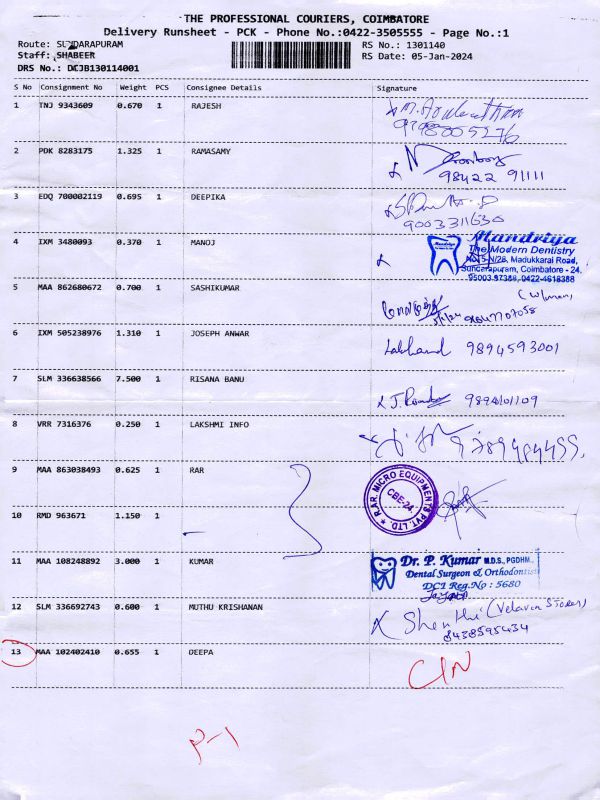 THE PROFESSIONAL COURIERS, COIMBATORE
Delivery Runsheet - PCK - Phone No.:0422-3505555 - Page No.:1
Route: SUNDARAPURAM
RS No.: 1301140
Staff: SHABEER
RS Date: 05-Jan-2024
DRS No.: DCJB130114001
S No Consignment No Weight PCS Consignee Details Signature
1 TNJ 9343609 0.670 1 RAJESH
2 PDK 8283175 1.325 1 RAMASAMY
98422 91111
3 EDQ 700002119 0.695 1 DEEPIKA
9003311630
4 IXM 3480093 0.370 1 MANOJ
Mandriya
The Modern Dentistry
Madukkarai Road,
Sundarapuram, Coimbatore - 24.
5 MAA 862680672 0.700 1 SASHIKUMAR
6 IXM 505238976 1.310 1 JOSEPH ANWAR
Lakhand 9894593001
7 SLM 336638566 7.500 1 RISANA BANU
8 VRR 7316376 0.250 1 LAKSHMI INFO
9 MAA 863038493 0.625 1 RAR
R.AR. MICRO EQUIPMENTS PVT. LTD
CBE-24.
10 RMD 963671 1.150 1
11 MAA 108248892 3.000 1 KUMAR
Dr. P. Kumar M.D.S., PGDHM.,
Dental Surgeon & Orthodontist
DCI Reg.No : 5680
12 SLM 336692743 0.600 1 MUTHU KRISHANAN
Shenthi (Velavan Stores)
8438595434
13 MAA 102402410 0.655 1 DEEPA
CIN
P-1